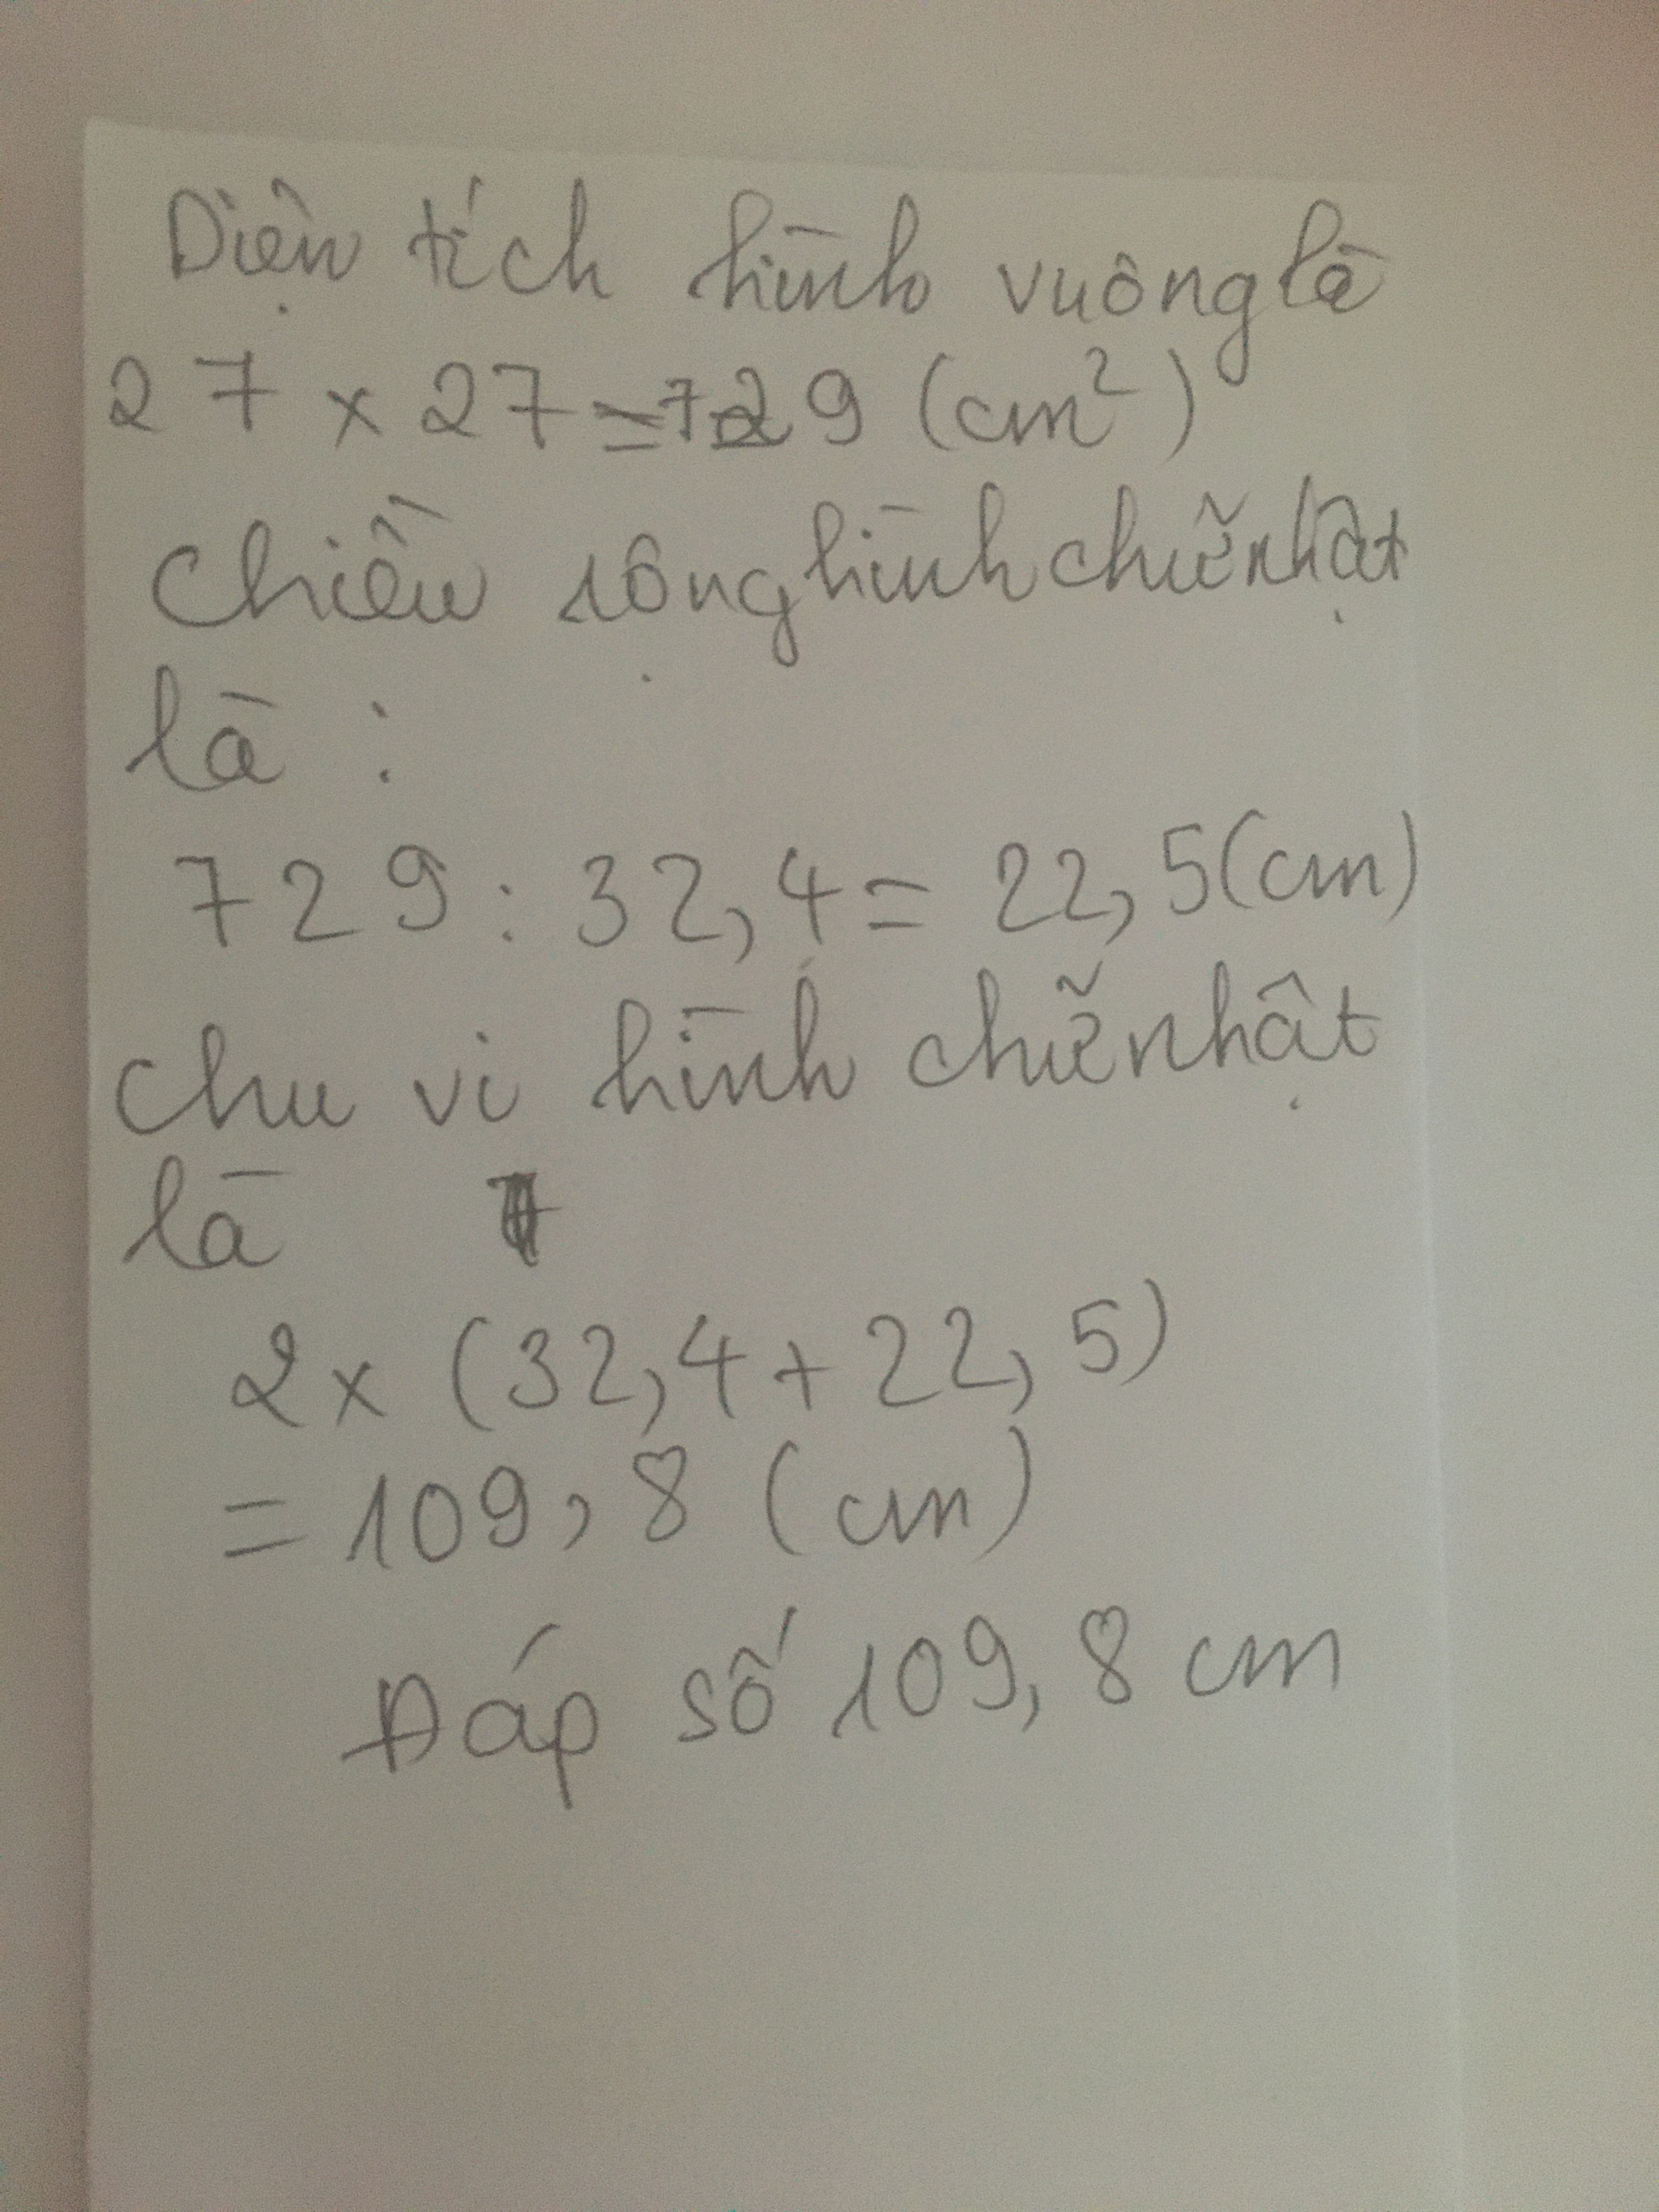 Diện tích hình vuông là
27 x 27 = 729 (cm²)
Chiều rộng hình chữ nhật
là :
729 : 32,4 = 22,5 (cm)
Chu vi hình chữ nhật
là
2 x (32,4 + 22,5)
= 109,8 (cm)
Đáp số 109,8 cm